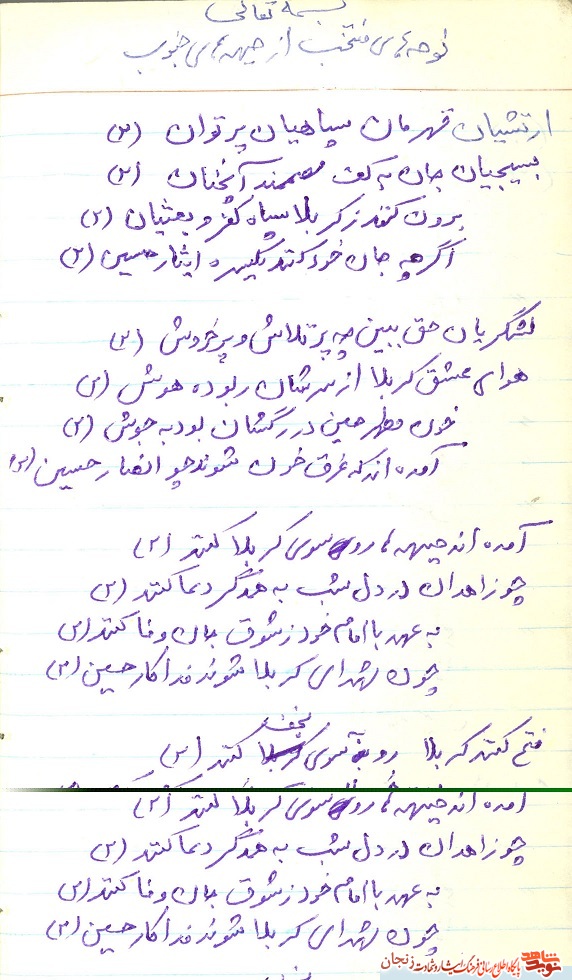 بسمه تعالی
نوحه های منتخب از جبهه های جنوب
ارتشیان قهرمان سپاهیان پر توان (س)
بسیجیان جان به کف مصمند آنچنان (س)
برون کنند ز کربلا سپاه کفر و بعثیان (س)
اگر چه جان خود کنند یکسره ایثار حسین (س)
لشگریان حق ببین چه پر تلاش و پر خروش (س)
هوای عشق کربلا از سرشان ربوده هوش (س)
خون مطهر حسین در رگشان بود به جوش (س)
آمده اند که غرق خون شوند چو انصار حسین (س)
آمده اند جبهه ها، رو سوی کربلا کنند (س)
چو زاهدان در دل شب به همدگر دعا کنند (س)
به عهد با امام خود ز شوق جان وفا کنند (س)
چون شهدای کربلا شوند فداکار حسین (س)
نجف
فتح کنند کربلا رو به سوی کربلا کنند (س)
آمده اند جبهه ها، رو سوی کربلا کنند (س)
چو زاهدان در دل شب به همدگر دعا کنند (س)
به عهد با امام خود ز شوق جان وفا کنند (س)
چون شهدای کربلا شوند فداکار حسین (س)
نوید شاهد پایگاه اطلاع رسانی فرهنگ ایثار و شهادت زنجان